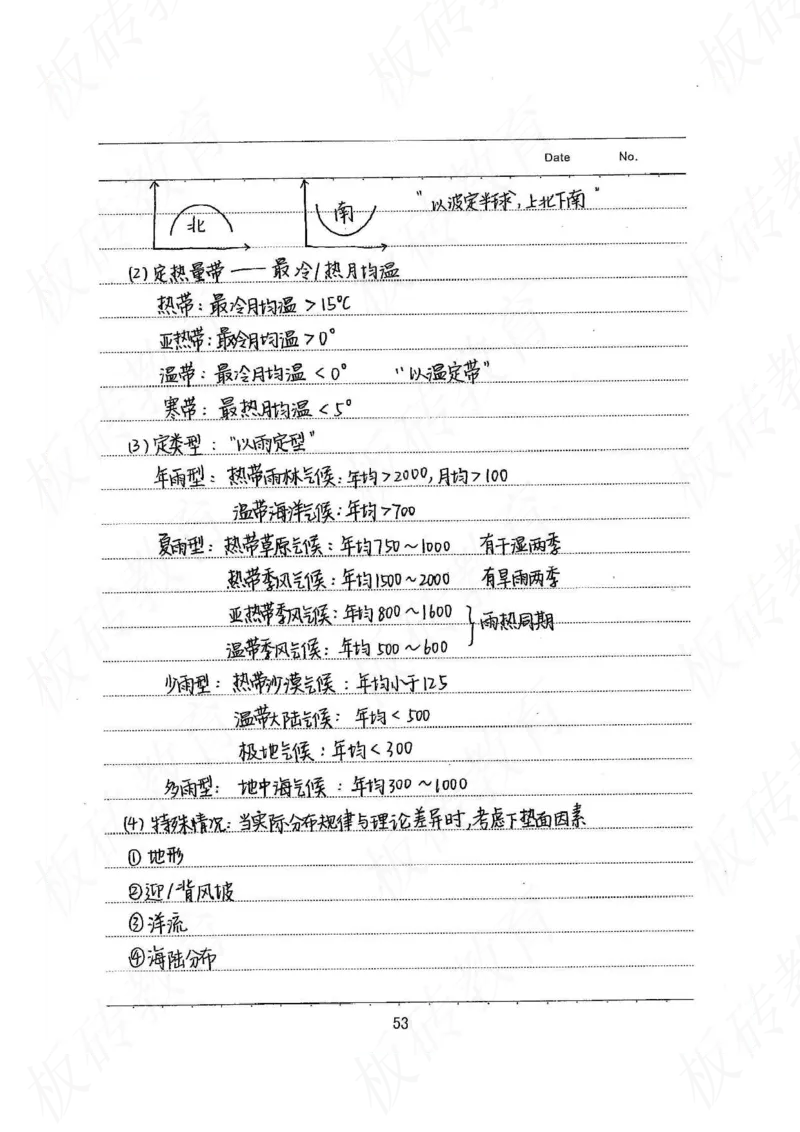 Date No.
北 南 "以波定半球,上北下南"
(2)定热量带——最冷/热月均温
热带:最冷月均温>15℃
亚热带:最冷月均温>0°
温带:最冷月均温<0° "以温定带"
寒带:最热月均温<5°
(3)定类型:"以雨定型"
年雨型:热带雨林气候:年均>2000,月均>100
温带海洋气候:年均>700
夏雨型:热带草原气候:年均750~1000 有干湿两季
热带季风气候:年均1500~2000 有旱雨两季
亚热带季风气候:年均800~1600 雨热同期
温带季风气候:年均500~600
少雨型:热带沙漠气候:年均小于125
温带大陆气候:年均<500
极地气候:年均<300
多雨型:地中海气候:年均300~1000
(4)特殊情况:当实际分布规律与理论差异时,考虑下垫面因素
①地形
②迎/背风坡
③洋流
④海陆分布
53
板砖教育